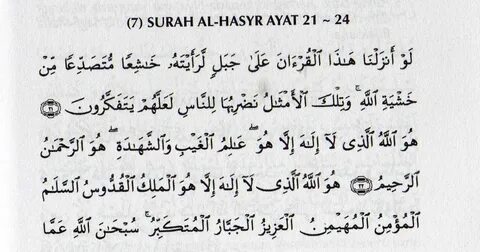 (7) SURAH AL-HASYR AYAT 21 ~ 24
لَوْ أَنزَلْنَا هَـٰذَا الْقُرْءَانَ عَلَىٰ جَبَلٍ لَّرَأَيْتَهُۥ خَـٰشِعًا مُّتَصَدِّعًا مِّنْ
خَشْيَةِ اللَّهِ ۚ وَتِلْكَ الْأَمْثَـٰلُ نَضْرِبُهَا لِلنَّاسِ لَعَلَّهُمْ يَتَفَكَّرُونَ ﴿٢١﴾
هُوَ اللَّهُ الَّذِى لَآ إِلَـٰهَ إِلَّا هُوَ ۖ عَـٰلِمُ الْغَيْبِ وَالشَّهَـٰدَةِ ۖ هُوَ الرَّحْمَـٰنُ
الرَّحِيمُ ﴿٢٢﴾ هُوَ اللَّهُ الَّذِى لَآ إِلَـٰهَ إِلَّا هُوَ الْمَلِكُ الْقُدُّوسُ السَّلَـٰمُ
الْمُؤْمِنُ الْمُهَيْمِنُ الْعَزِيزُ الْجَبَّارُ الْمُتَكَبِّرُ ۚ سُبْحَـٰنَ اللَّهِ عَمَّا